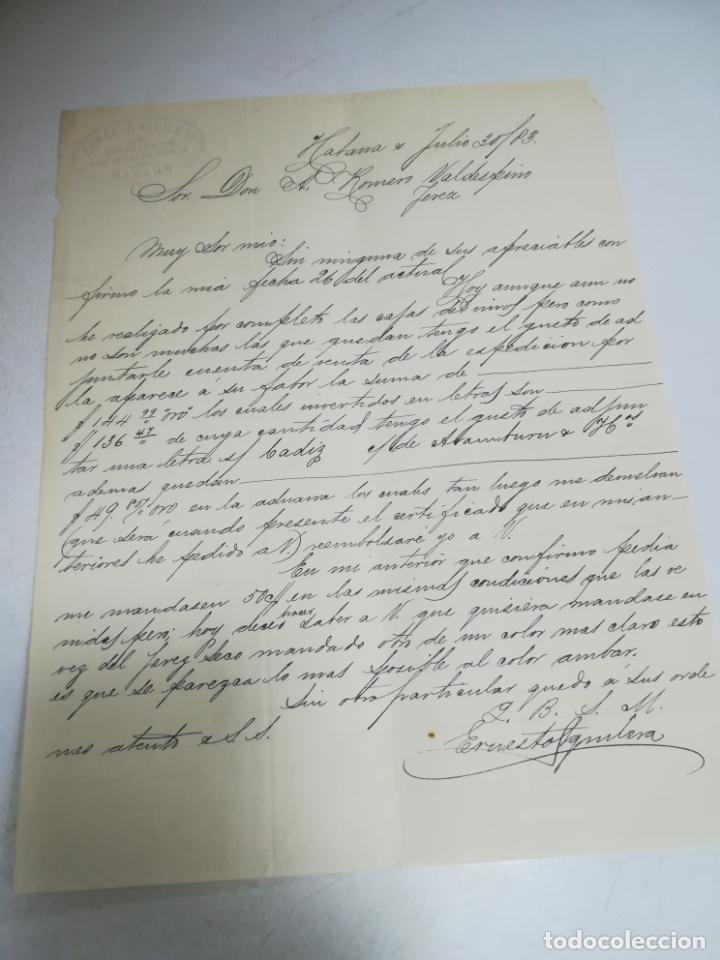 ERNESTO AGUILERA
HABANA
Habana Julio 30/83.
Sor. Don A. Romero Valdespino
Jerez
Muy Sor mio:
Sin ninguna de sus apreciables con
firmo la mia fecha 26 del actual
Hoy aunque aun no
he realizado por completo las cajas de vinos pero como
no son muchas las que quedan tengo el gusto de ad
juntarle cuenta de venta de la expedicion por
la, aparece á su fabor la suma de
$ 144 99 oro los cuales invertidos en letras son
$ 136 47 de cuya cantidad tengo el gusto de adjun
tar una letra s/ Cadiz c/ de Aramburu & Hos
ademas quedan
$ 49. 85 oro en la aduana los cuales tan luego me devuelvan
(que será cuando presente el certificado que en mis an
teriores he pedido a V.) rembolsaré yo a V.
En mi anterior que confirmo pedia
me mandasen 50 c/ en las mismas condiciones que las ve
nidas pero; hoy deceo hacer saber a V. que quisiera mandase en
vez del Jerez Seco mandado otro de un color mas claro esto
es que se parezca lo mas posible al color ambar.
Sin otro particular quedo á sus orde
nes atento e S. S.
Q. B. S. M.
Ernesto Aguilera
todocoleccion
todocoleccion.net